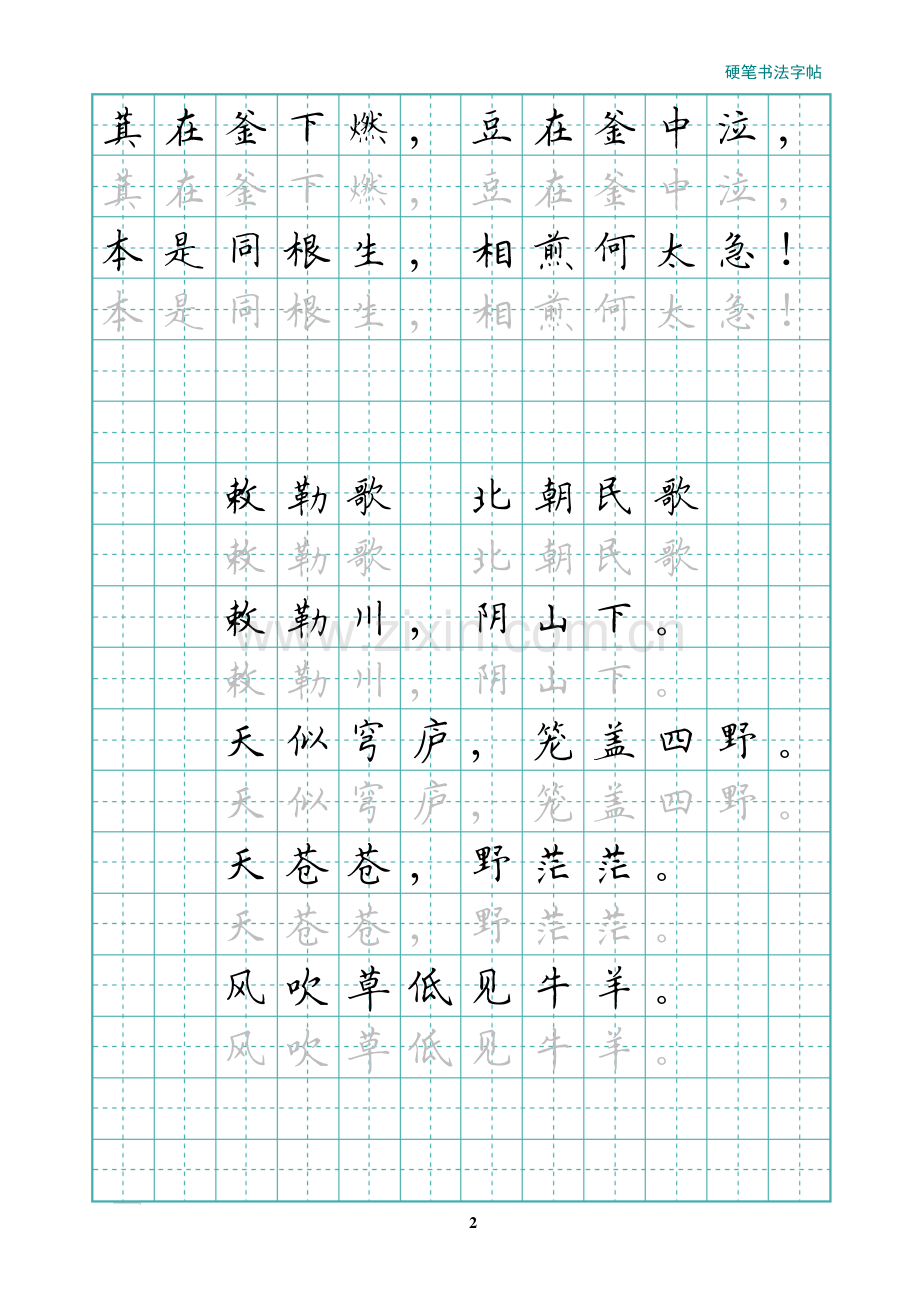 硬笔书法字帖
萁在釜下燃，豆在釜中泣，
萁在釜下燃，豆在釜中泣，
本是同根生，相煎何太急！
本是同根生，相煎何太急！
敕勒歌 北朝民歌
敕勒歌 北朝民歌
敕勒川，阴山下。
www.zixin.com.cn
敕勒川，阴山下。
天似穹庐，笼盖四野。
天似穹庐，笼盖四野。
天苍苍，野茫茫。
天苍苍，野茫茫。
风吹草低见牛羊。
风吹草低见牛羊。
2